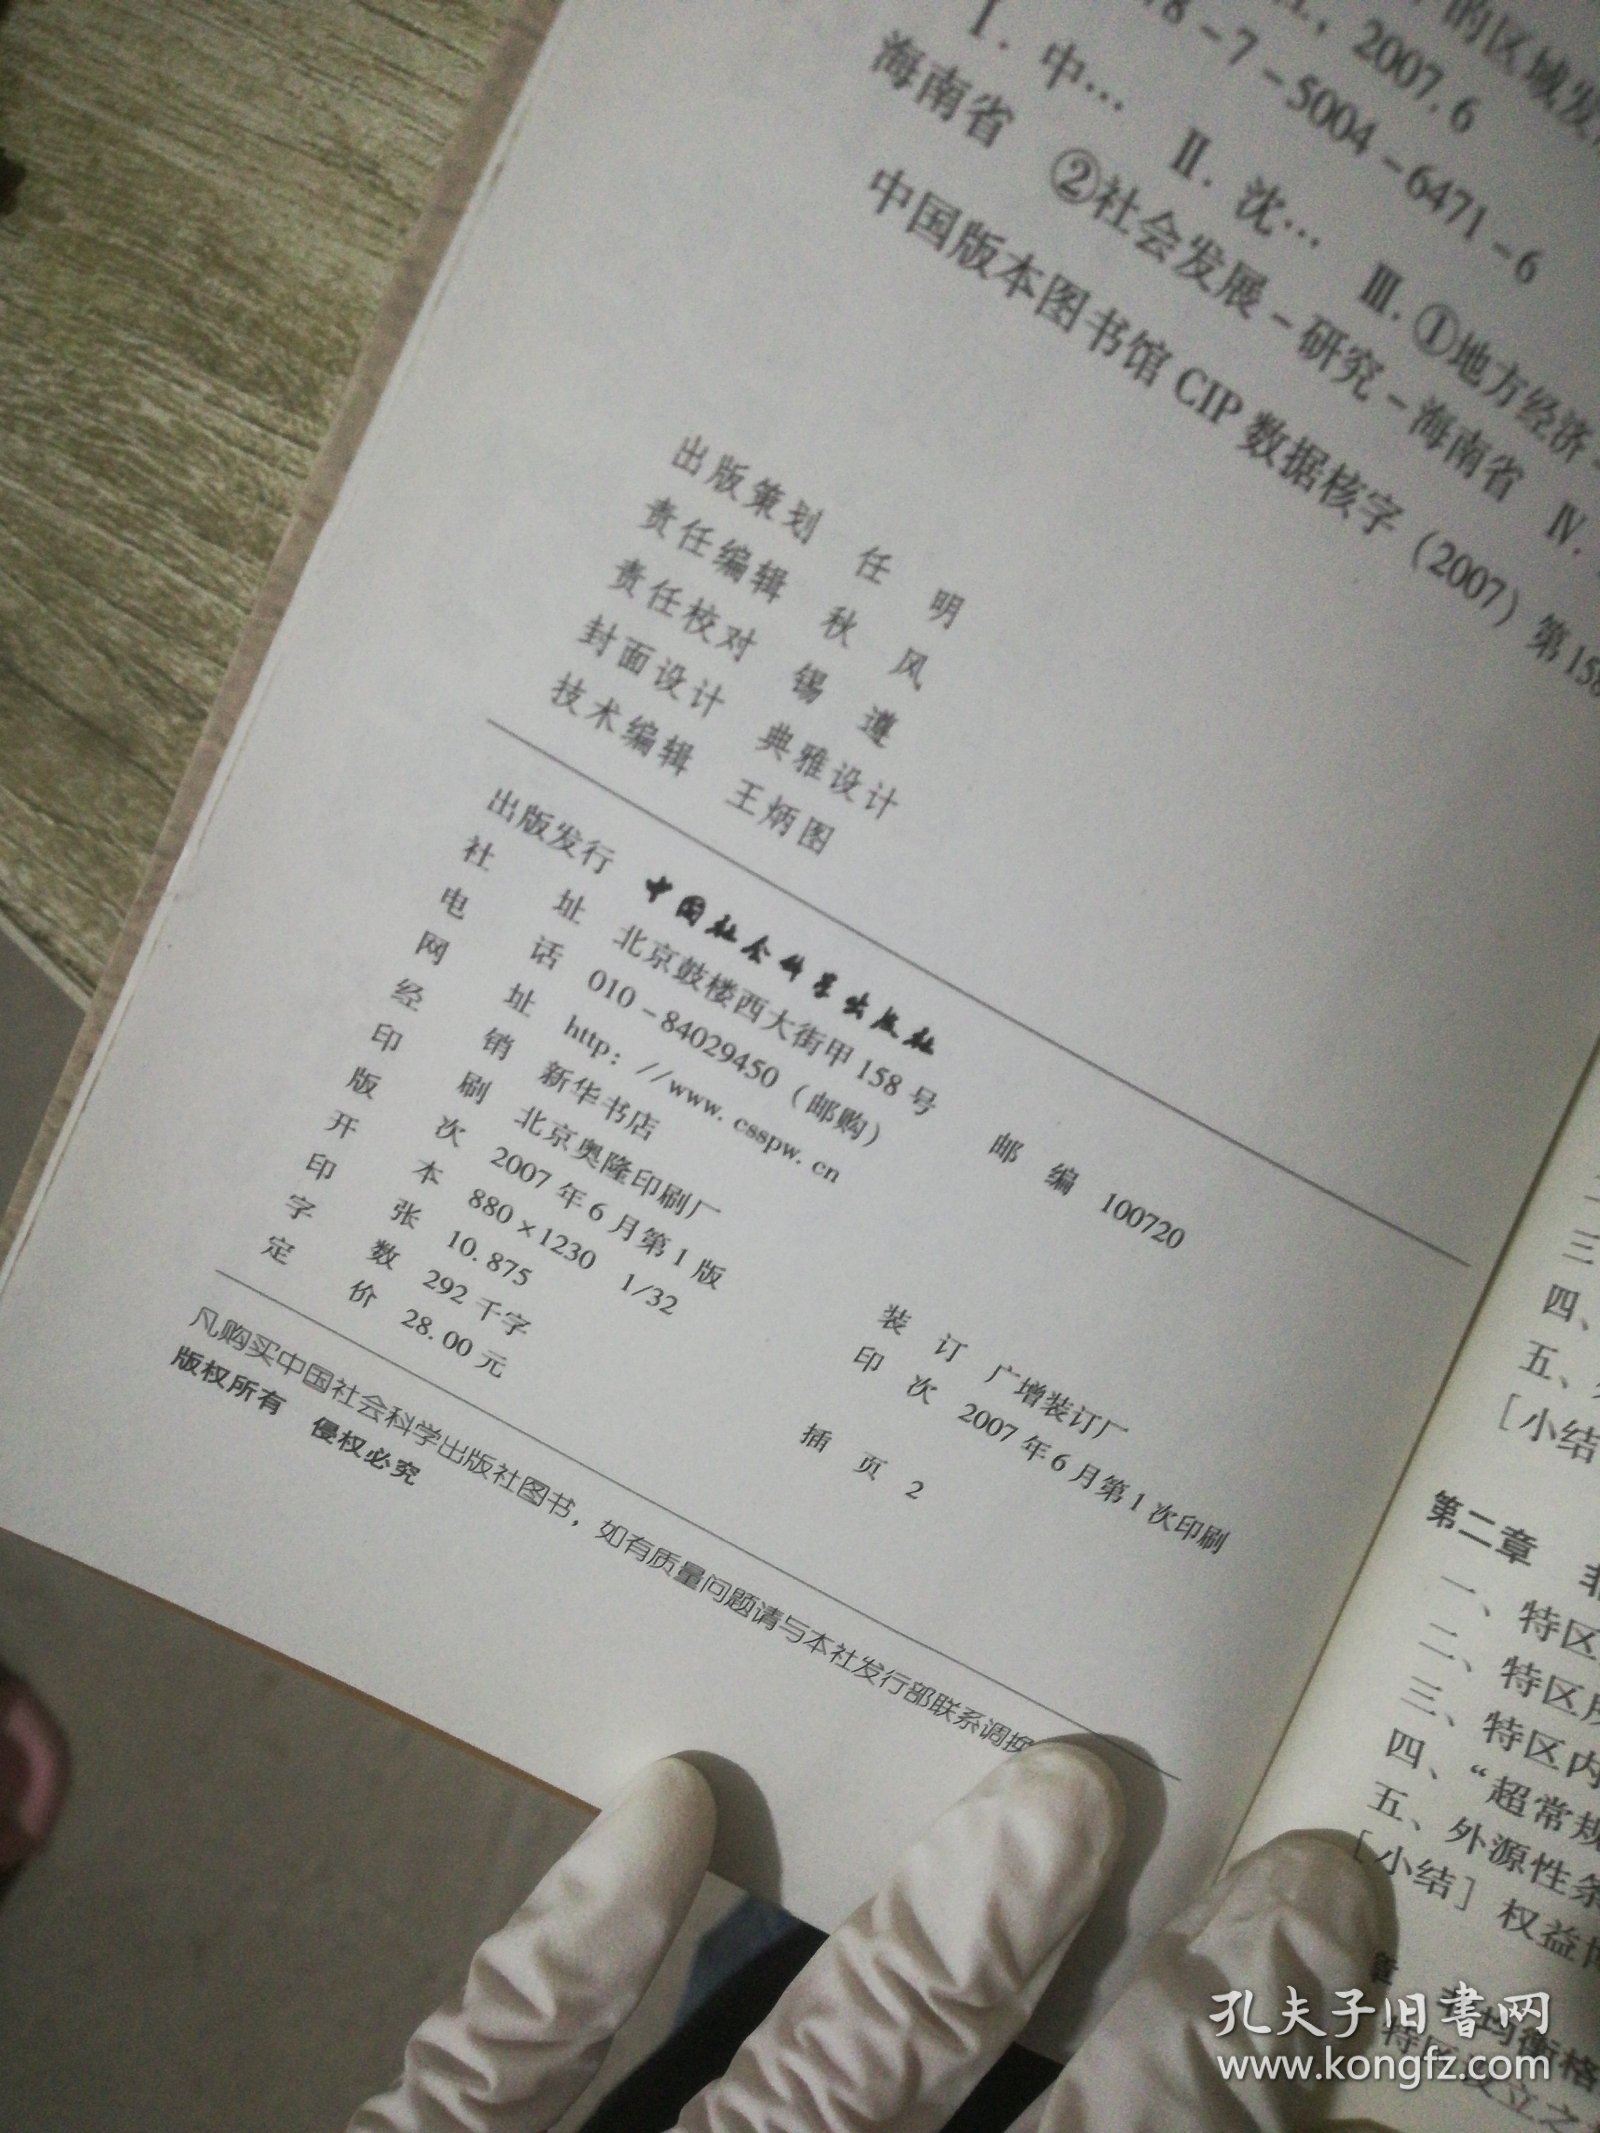 的区域发
，2007.6
8－7－5004－6471－6
Ⅰ.中… Ⅱ.沈… Ⅲ.①地方经济－
海南省 ②社会发展－研究－海南省 Ⅳ.
中国版本图书馆CIP数据核字（2007）第158
出版策划 任 明
责任编辑 秋 风
责任校对 锡 遵
封面设计 典雅设计
技术编辑 王炳图
出版发行 中国社会科学出版社
社 址 北京鼓楼西大街甲158号 邮 编 100720
电 话 010－84029450（邮购）
网 址 http：//www.csspw.cn
经 销 新华书店
印 刷 北京奥隆印刷厂 装 订 广增装订厂
版 次 2007年6月第1版 印 次 2007年6月第1次印刷
开 本 880×1230 1/32
印 张 10.875 插 页 2
字 数 292千字
定 价 28.00元
凡购买中国社会科学出版社图书，如有质量问题请与本社发行部联系调换
版权所有 侵权必究
三
四、
五、
［小结
第二章 非
一、特区
二、特区
三、特区内
四、“超常规
五、外源性条
［小结］权益
章 非均衡格
特区设立之
孔夫子旧书网
www.kongfz.com